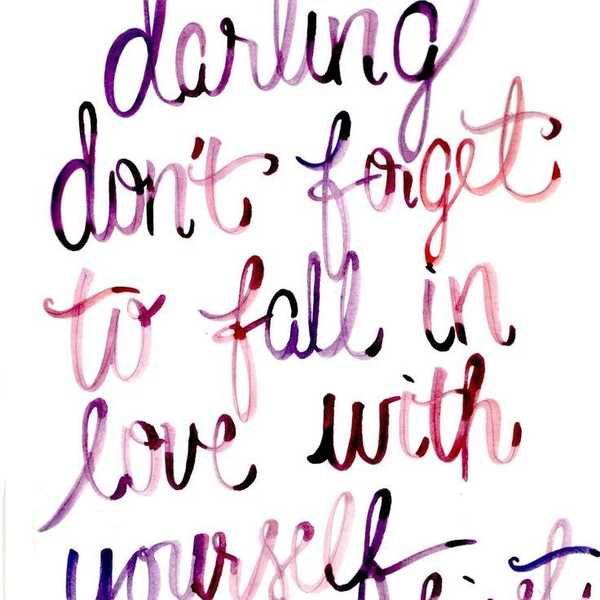 darling
don't forget
to fall in
love with
yourself